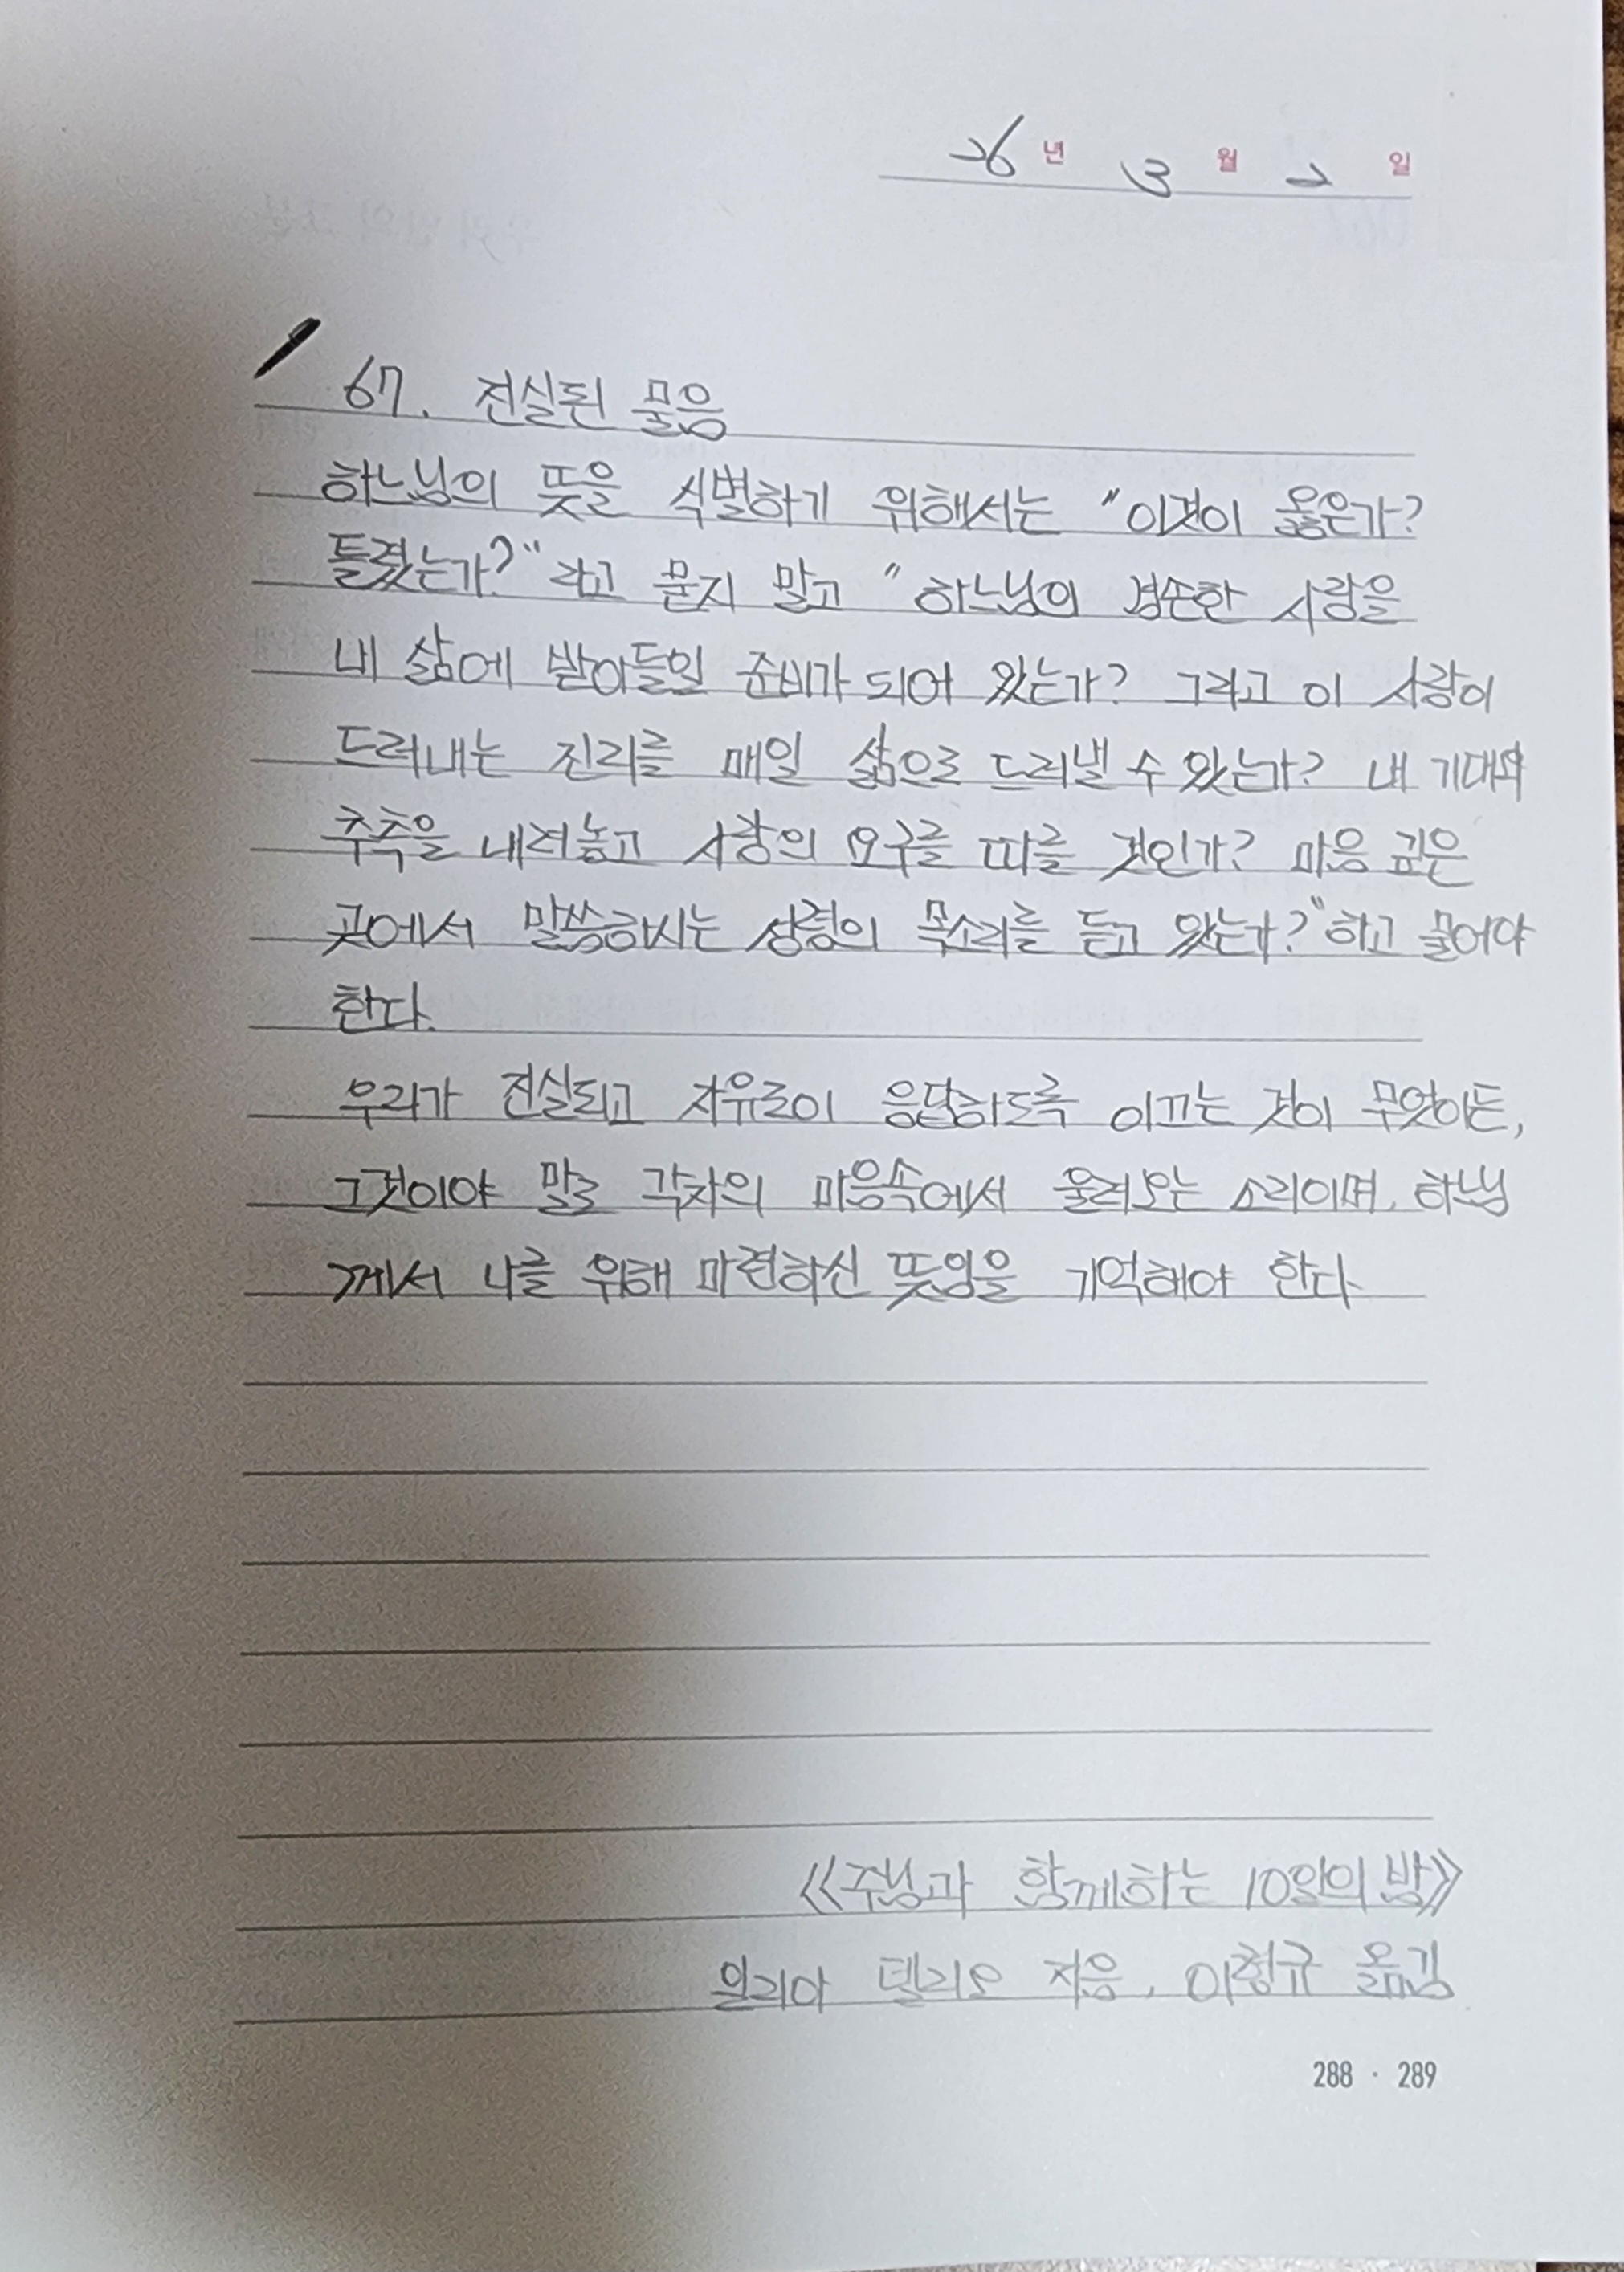 26년 3월 2일
67. 진실된 물음
하느님의 뜻을 식별하기 위해서는 "이것이 옳은가?
틀렸는가?"라고 묻지 말고 "하느님의 겸손한 사랑을
내 삶에 받아들일 준비가 되어 있는가? 그리고 이 사랑이
드러내는 진리를 매일 삶으로 드러낼 수 있는가? 내 기대와
추측을 내려놓고 사랑의 요구를 따를 것인가? 마음 깊은
곳에서 말씀하시는 성령의 목소리를 듣고 있는가?"하고 물어야
한다.
우리가 진실되고 자유로이 응답하도록 이끄는 것이 무엇이든,
그것이야 말로 각자의 마음속에서 울려오는 소리이며, 하느님
께서 나를 위해 마련하신 뜻임을 기억해야 한다
《주님과 함께하는 10일의 밤》
일리아 델리오 지음, 이청규 옮김
288 · 289